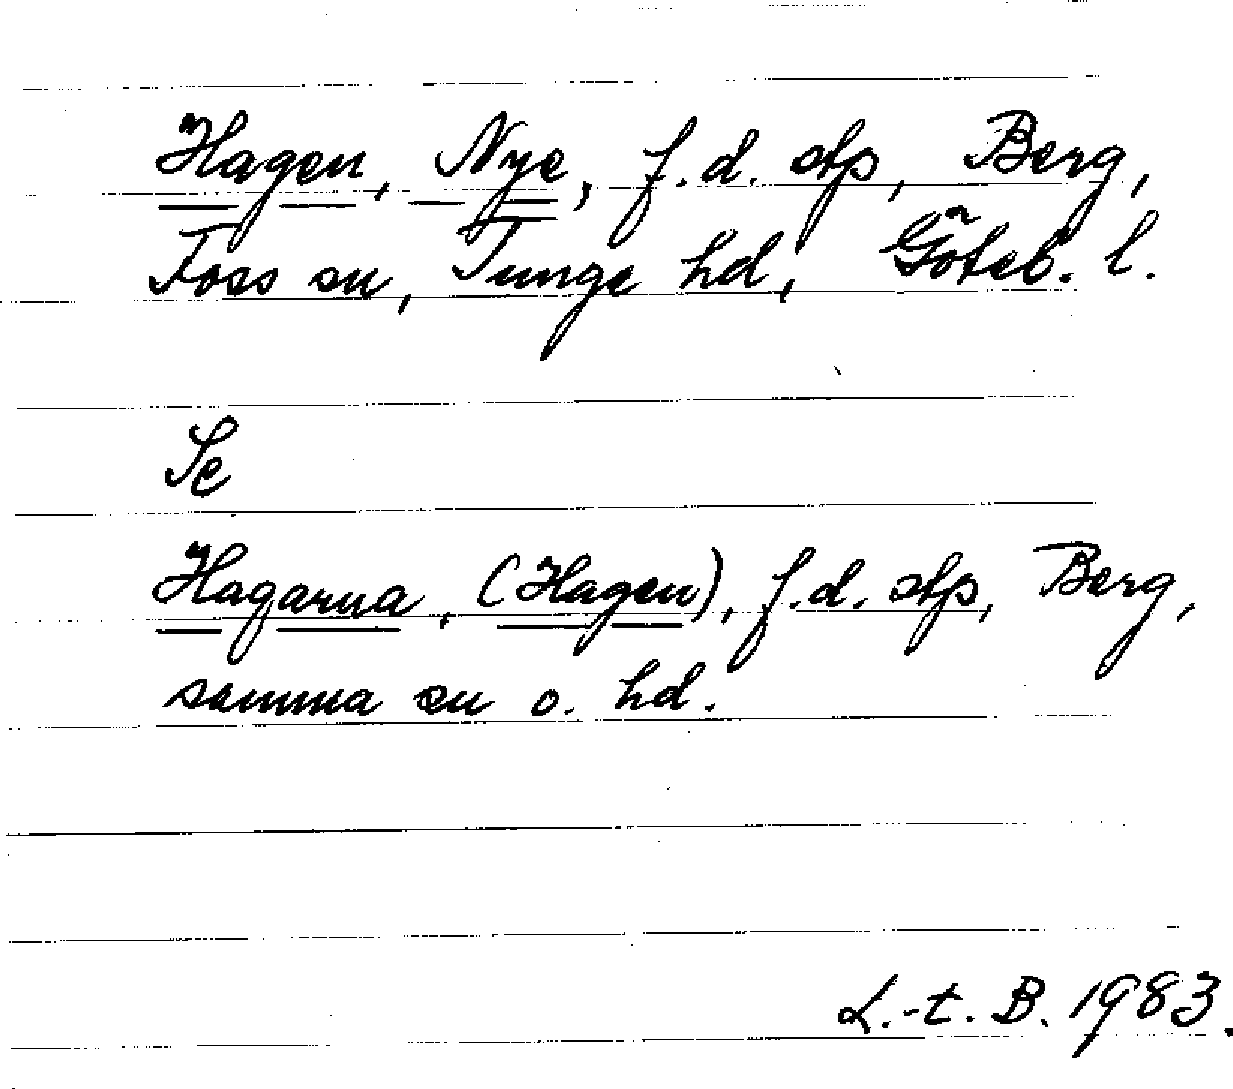 Hagen, Nye, f.d. stp, Berg,
Foss sn, Tunge hd, Göteb. l.
Se
Hagarna, (Hagen), f.d. stp, Berg,
samma sn o. hd.
L.-t. B. 1983.